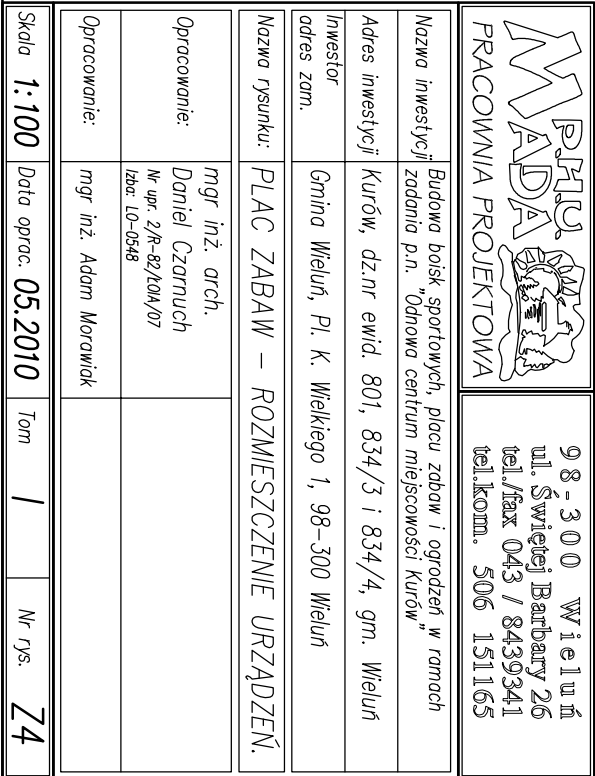 P.H.U.
MADA
PRACOWNIA PROJEKTOWA
98-300 Wieluń
ul. Świętej Barbary 26
tel./fax 043 / 8439341
tel.kom. 506 151165
Nazwa inwestycji
Budowa boisk sportowych, placu zabaw i ogrodzeń w ramach
zadania p.n. "Odnowa centrum miejscowości Kurów"
Adres inwestycji
Kurów, dz.nr ewid. 801, 834/3 i 834/4, gm. Wieluń
Inwestor
adres zam.
Gmina Wieluń, Pl. K. Wielkiego 1, 98-300 Wieluń
Nazwa rysunku:
PLAC ZABAW – ROZMIESZCZENIE URZĄDZEŃ.
Opracowanie:
mgr inż. arch.
Daniel Czarnuch
Nr upr. 2/R-82/ŁOIA/07
Izba: LO-0548
Opracowanie:
mgr inż. Adam Morawiak
Skala 1:100 Data oprac. 05.2010 Tom I Nr rys. Z4